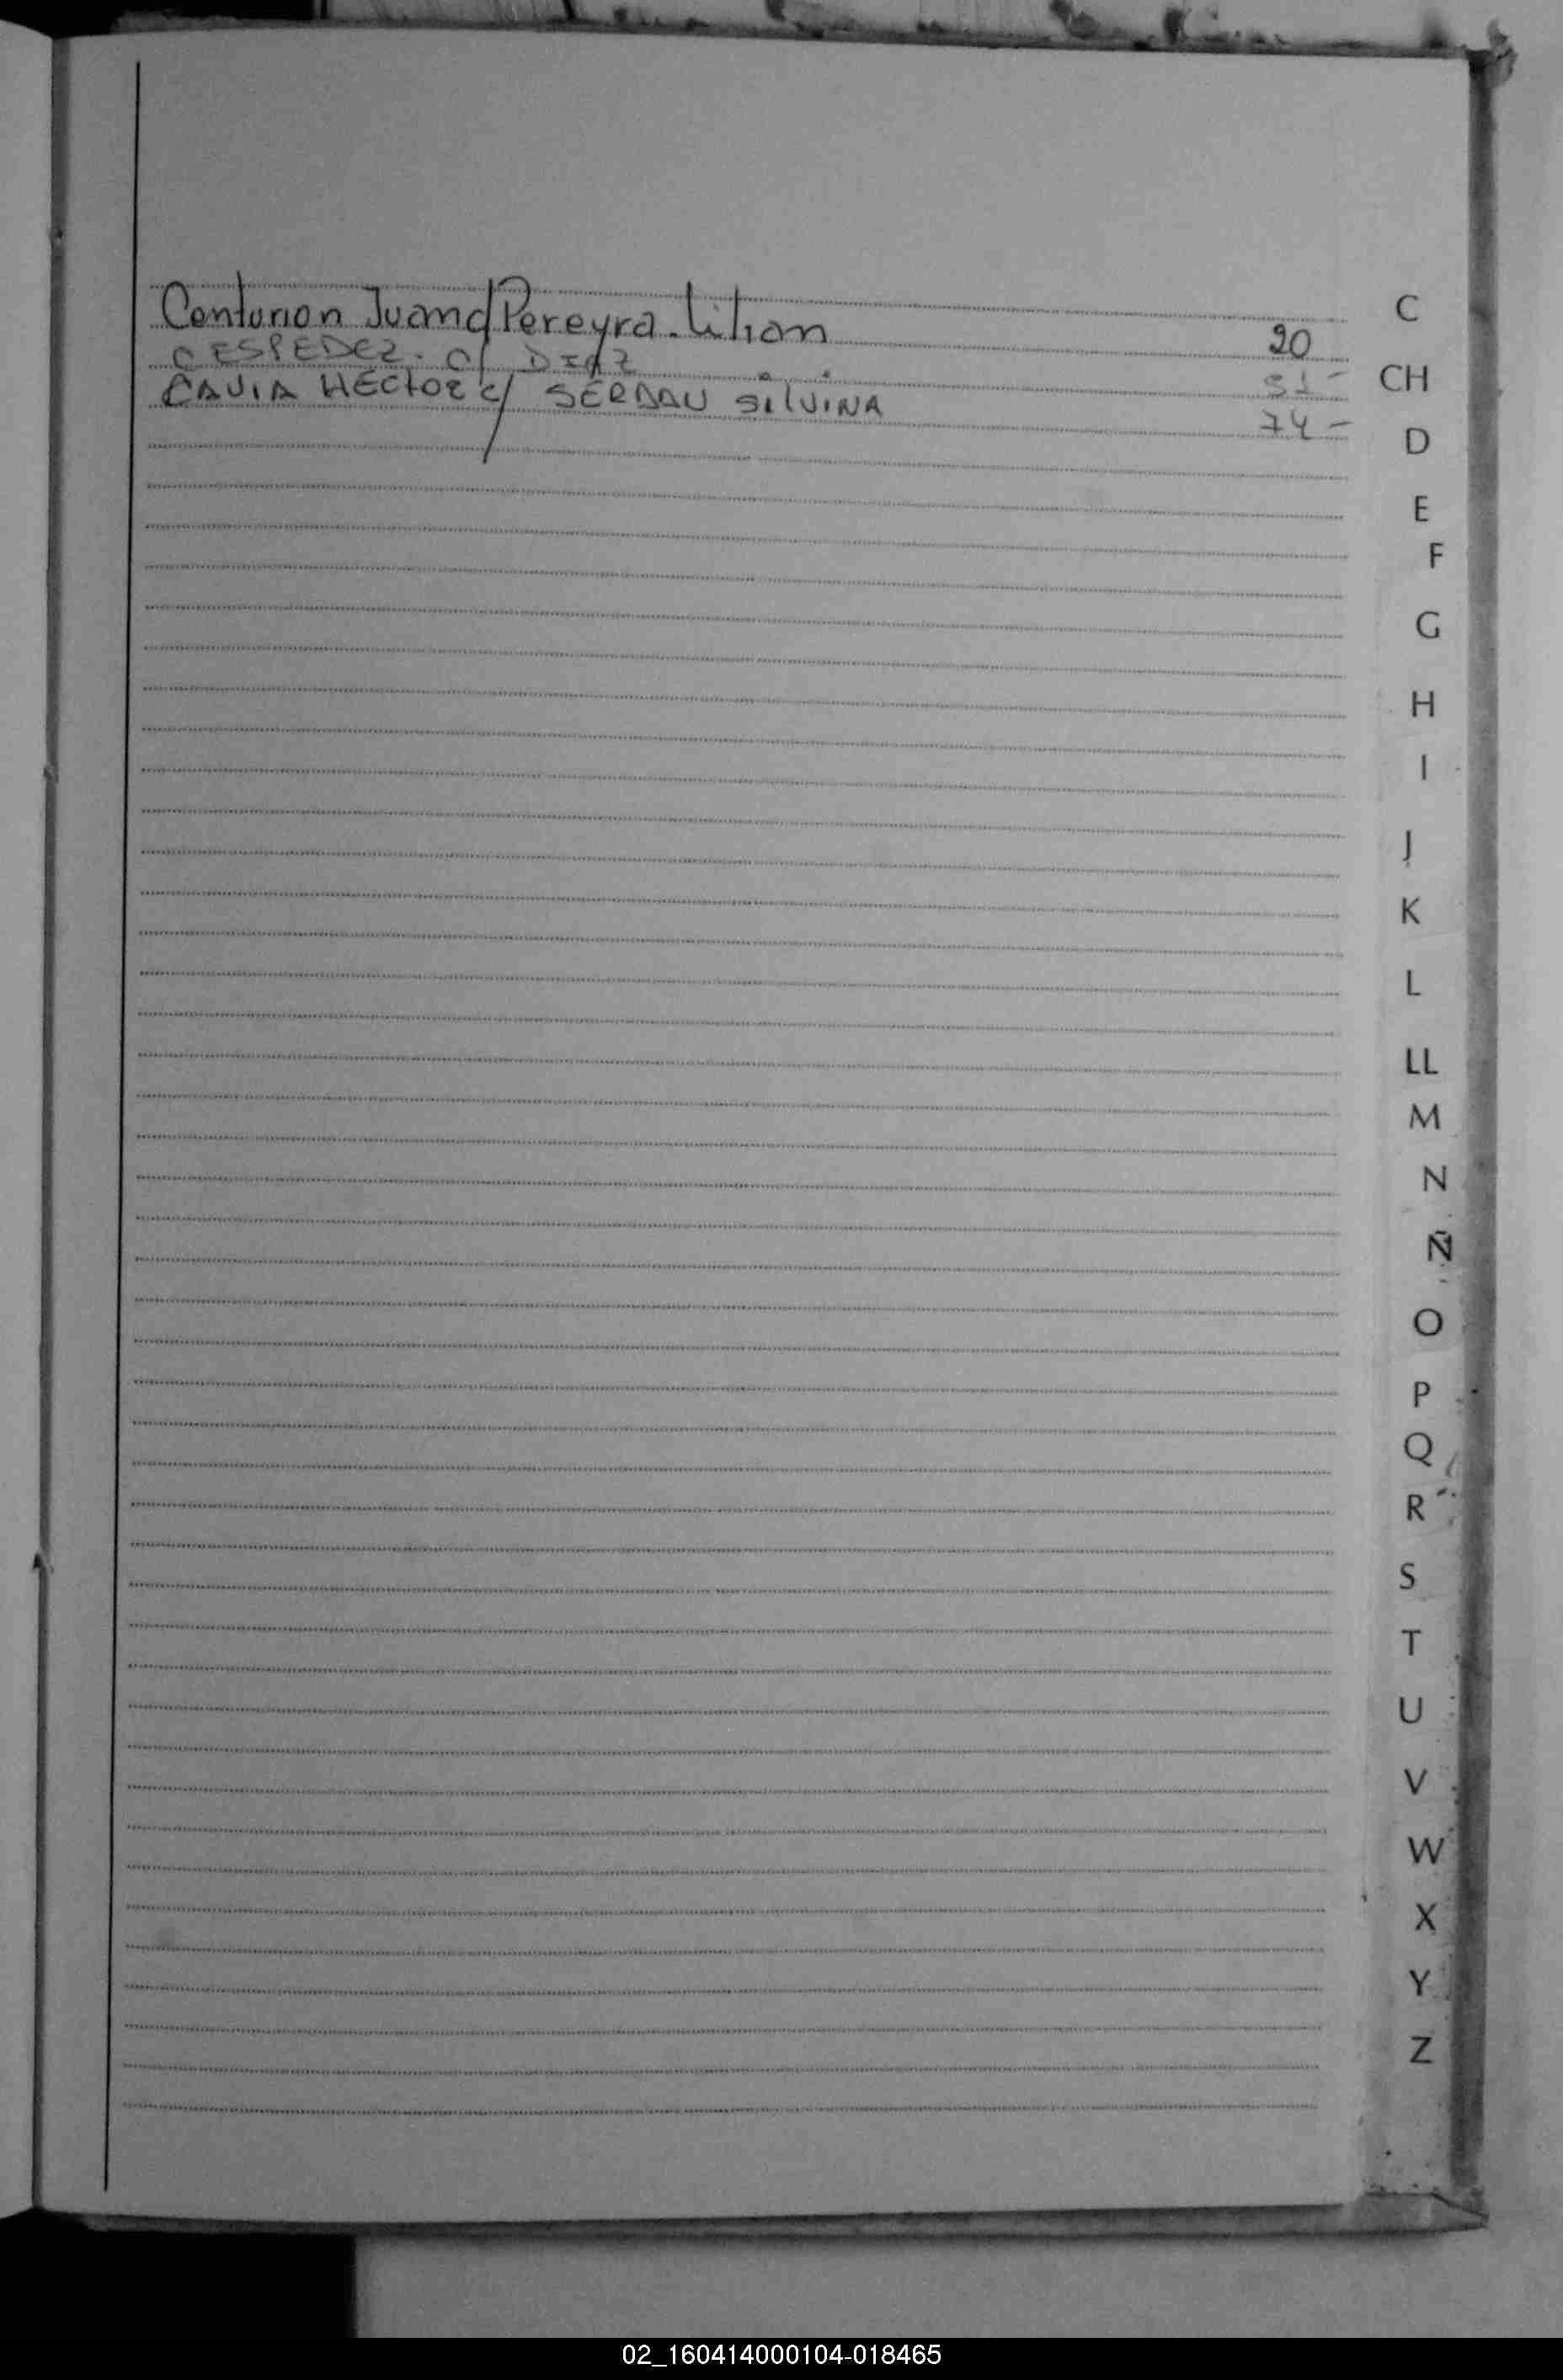 Centurion Juan c/ Pereyra. Lilian 20
CESPEDEZ. C/ DIAZ 31 -
CAVIA HECTOR c/ SERDAU SILVINA 74 -
C
CH
D
E
F
G
H
I
J
K
L
LL
M
N
Ñ
O
P
Q
R
S
T
U
V
W
X
Y
Z
02_160414000104-018465